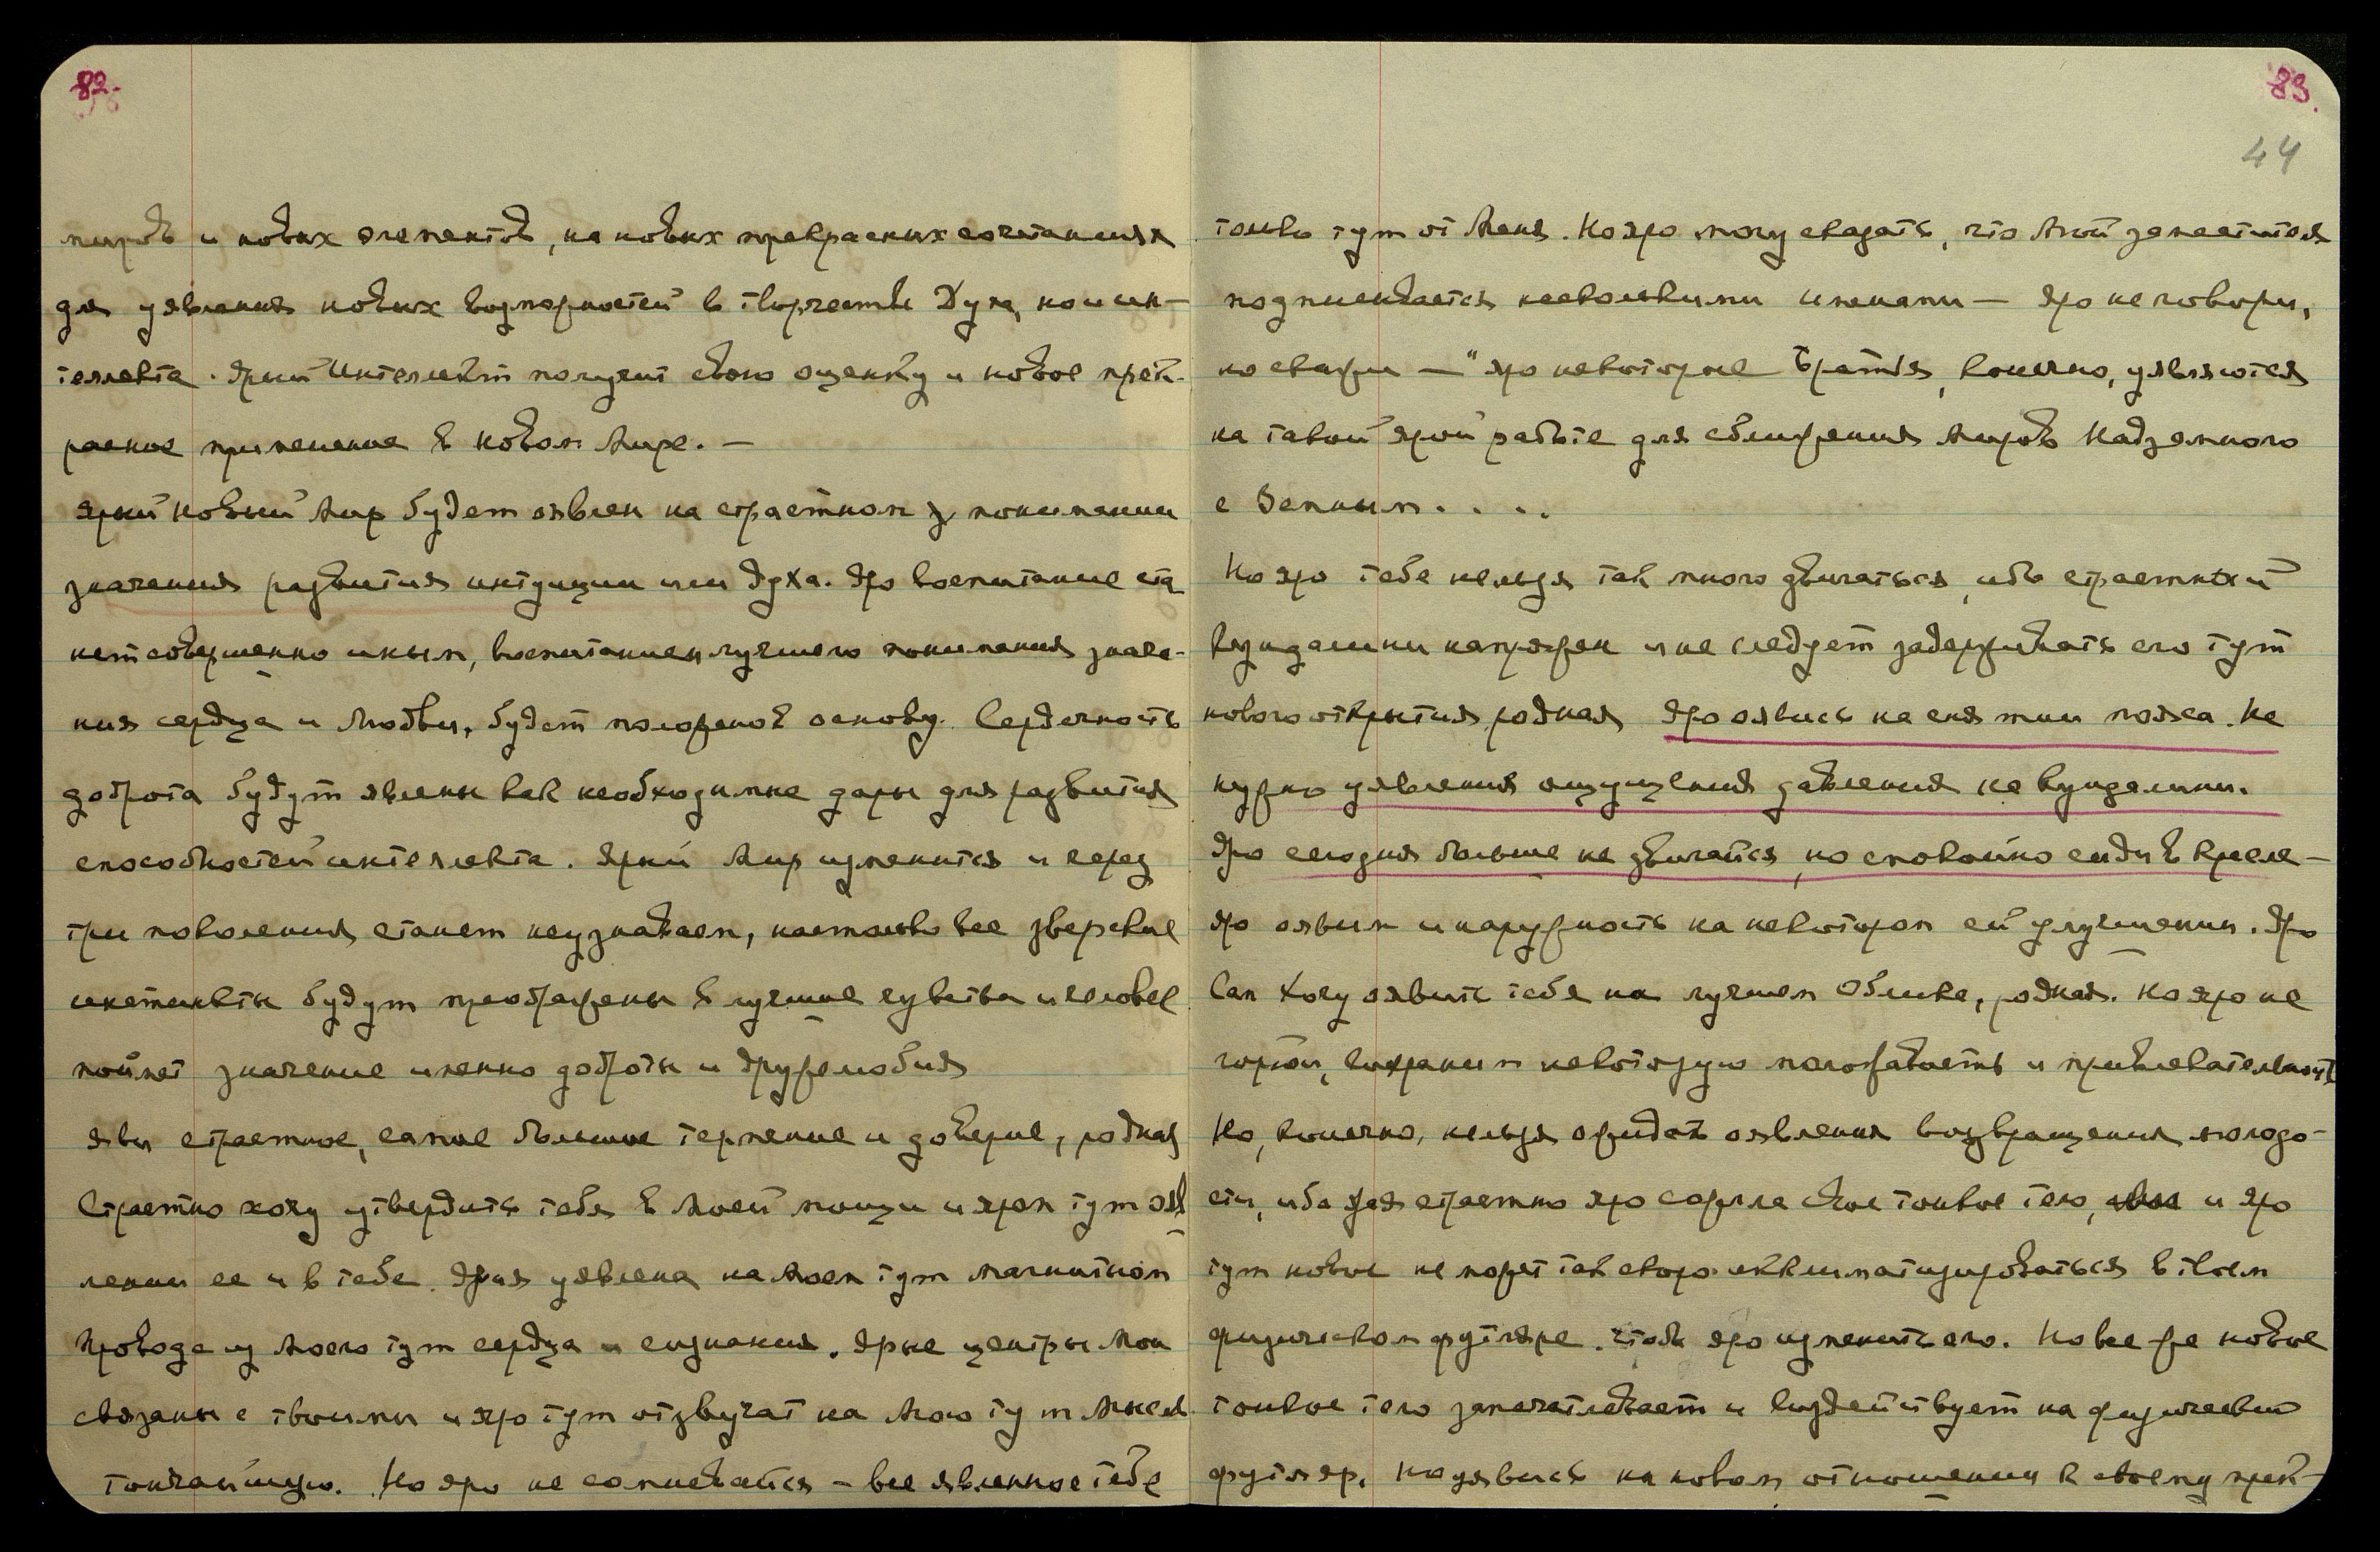 82.
миров и новых элементов, на новых прекрасных сочетаниях
для уявления новых возможностей в творчестве Духа, но и ин-
теллекта. Ярый Интеллект получит свою оценку и новое прек-
расное применение в новом Мире. —
Ярый новый Мир будет оявлен на страстном понимании
значения развития интуиции или духа. Яро воспитание ста
нет совершенно иным, воспитанием лучшего понимания значе-
ния сердца и Любви, будет положено в основу. Сердечность
доброта будут явлены как необходимые дары для развития
способностей интеллекта. Ярый Мир изменится и через
три поколения станет неузнаваем, настолько все зверские
инстинкты будут преображены в лучшие чувства и человек
поймет значение именно доброты и дружелюбия
Яви страстное, самое большое терпение и доверие, родная
Страстно хочу утвердить тебя в Моей мощи и яром тут ояв
лении ее и в тебе. Ярая уявлена на Моем тут магнитном
проводе из Моего тут сердца и сознания. Ярые центры Мои
связаны с твоими и яро тут отзвучат на Мою тут Мысль
тончайшую. Но яро не сомневайся – все явленное тебе
83.
44
только тут от Меня. Но яро могу сказать, что Мой заместитель
подписывается несколькими именами — яро не говори,
но скажи — "яро некоторые Братья, конечно, уявляются
на такой ярой работе для сближения Миров Надземного
с Земным. . . .
Но яро тебе нельзя так много двигаться, ибо страстный
кундалини напряжен и не следует задерживать его тут
нового открытия, родная Яро оявись на снятии пояса. Не
нужно уявления ощущения давления на кундалини.
Яро сегодня больше не двигайся, но спокойно сиди в кресле —
яро оявим и наружность на некотором ей улучшении. Яро
Сам хочу оявить тебя на лучшем Облике, родная. Но яро не
гормон, сохраним некоторую моложавость и привлекательность
Но, конечно, нельзя ожидать оявления возвращения молодо-
сти, ибо ярая страстно яро сожгла свое тонкое тело, и яро
тут новое не может так скоро акклиматизироваться в твоем
физическом футляре. чтоб яро изменить его. Но все же новое
тонкое тело запечатлевает и воздействует на физический
футляр. Но уявись на новом отношении к своему прек-